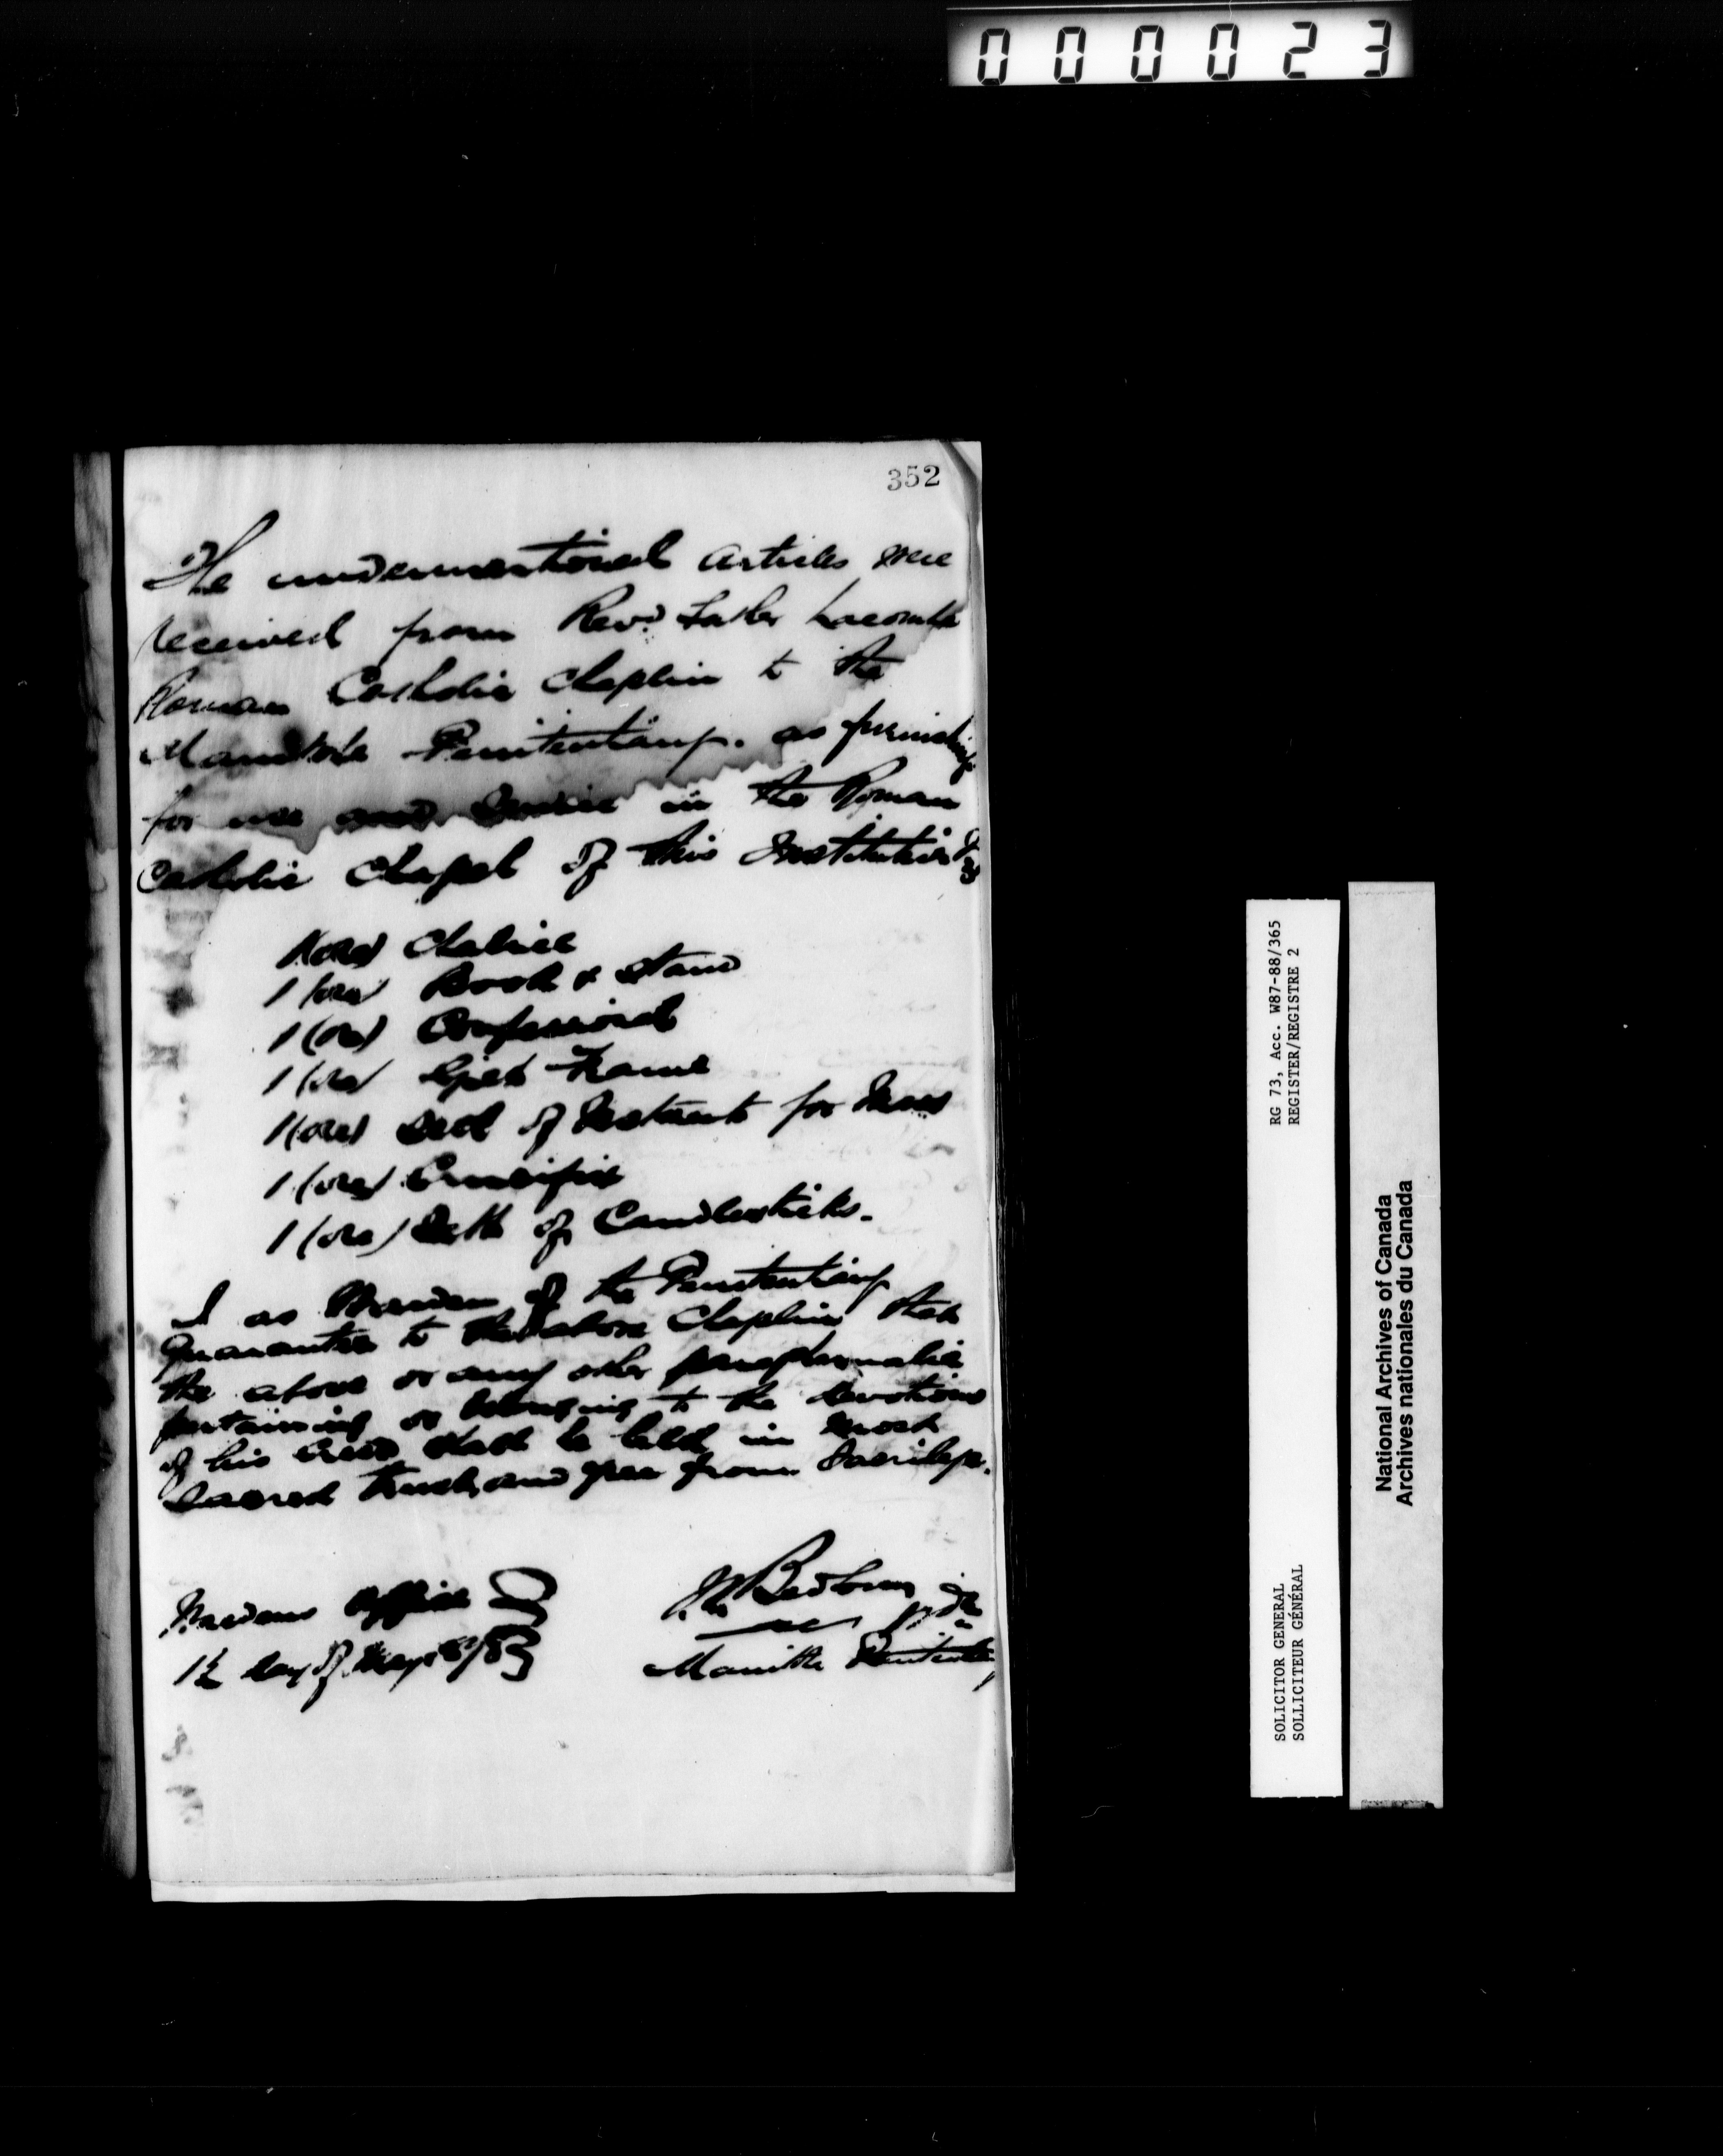 000023
352
The undermentioned Articles were
received from Revd. Father Lacombe
Roman Catholic Chaplin to the
Manitoba Penitentiary. as furnishings
for use and Service in the Roman
Catholic Chapel of this Institution
1 (one) Chalice
1 (one) Book & Stand
1 (one) Confessional
1 (one) Frame
1 (one) of Vestments for Mass
1 (one) Crucifix
1 (one) Sett of Candlesticks.
I as Warden of the Penitentiary
Guarantee to the above Chaplin that
the above or any other paraphernalia
pertaining or belonging to the devotions
of his Creed shall be held in most
Sacred trust, and free from Sacrilege.
Wardens Office
day of May
Bedson
Manitoba Penitentiary
RG 73, Acc. W87-88/365
REGISTER/REGISTRE 2
SOLICITOR GENERAL
SOLLICITEUR GÉNÉRAL
National Archives of Canada
Archives nationales du Canada